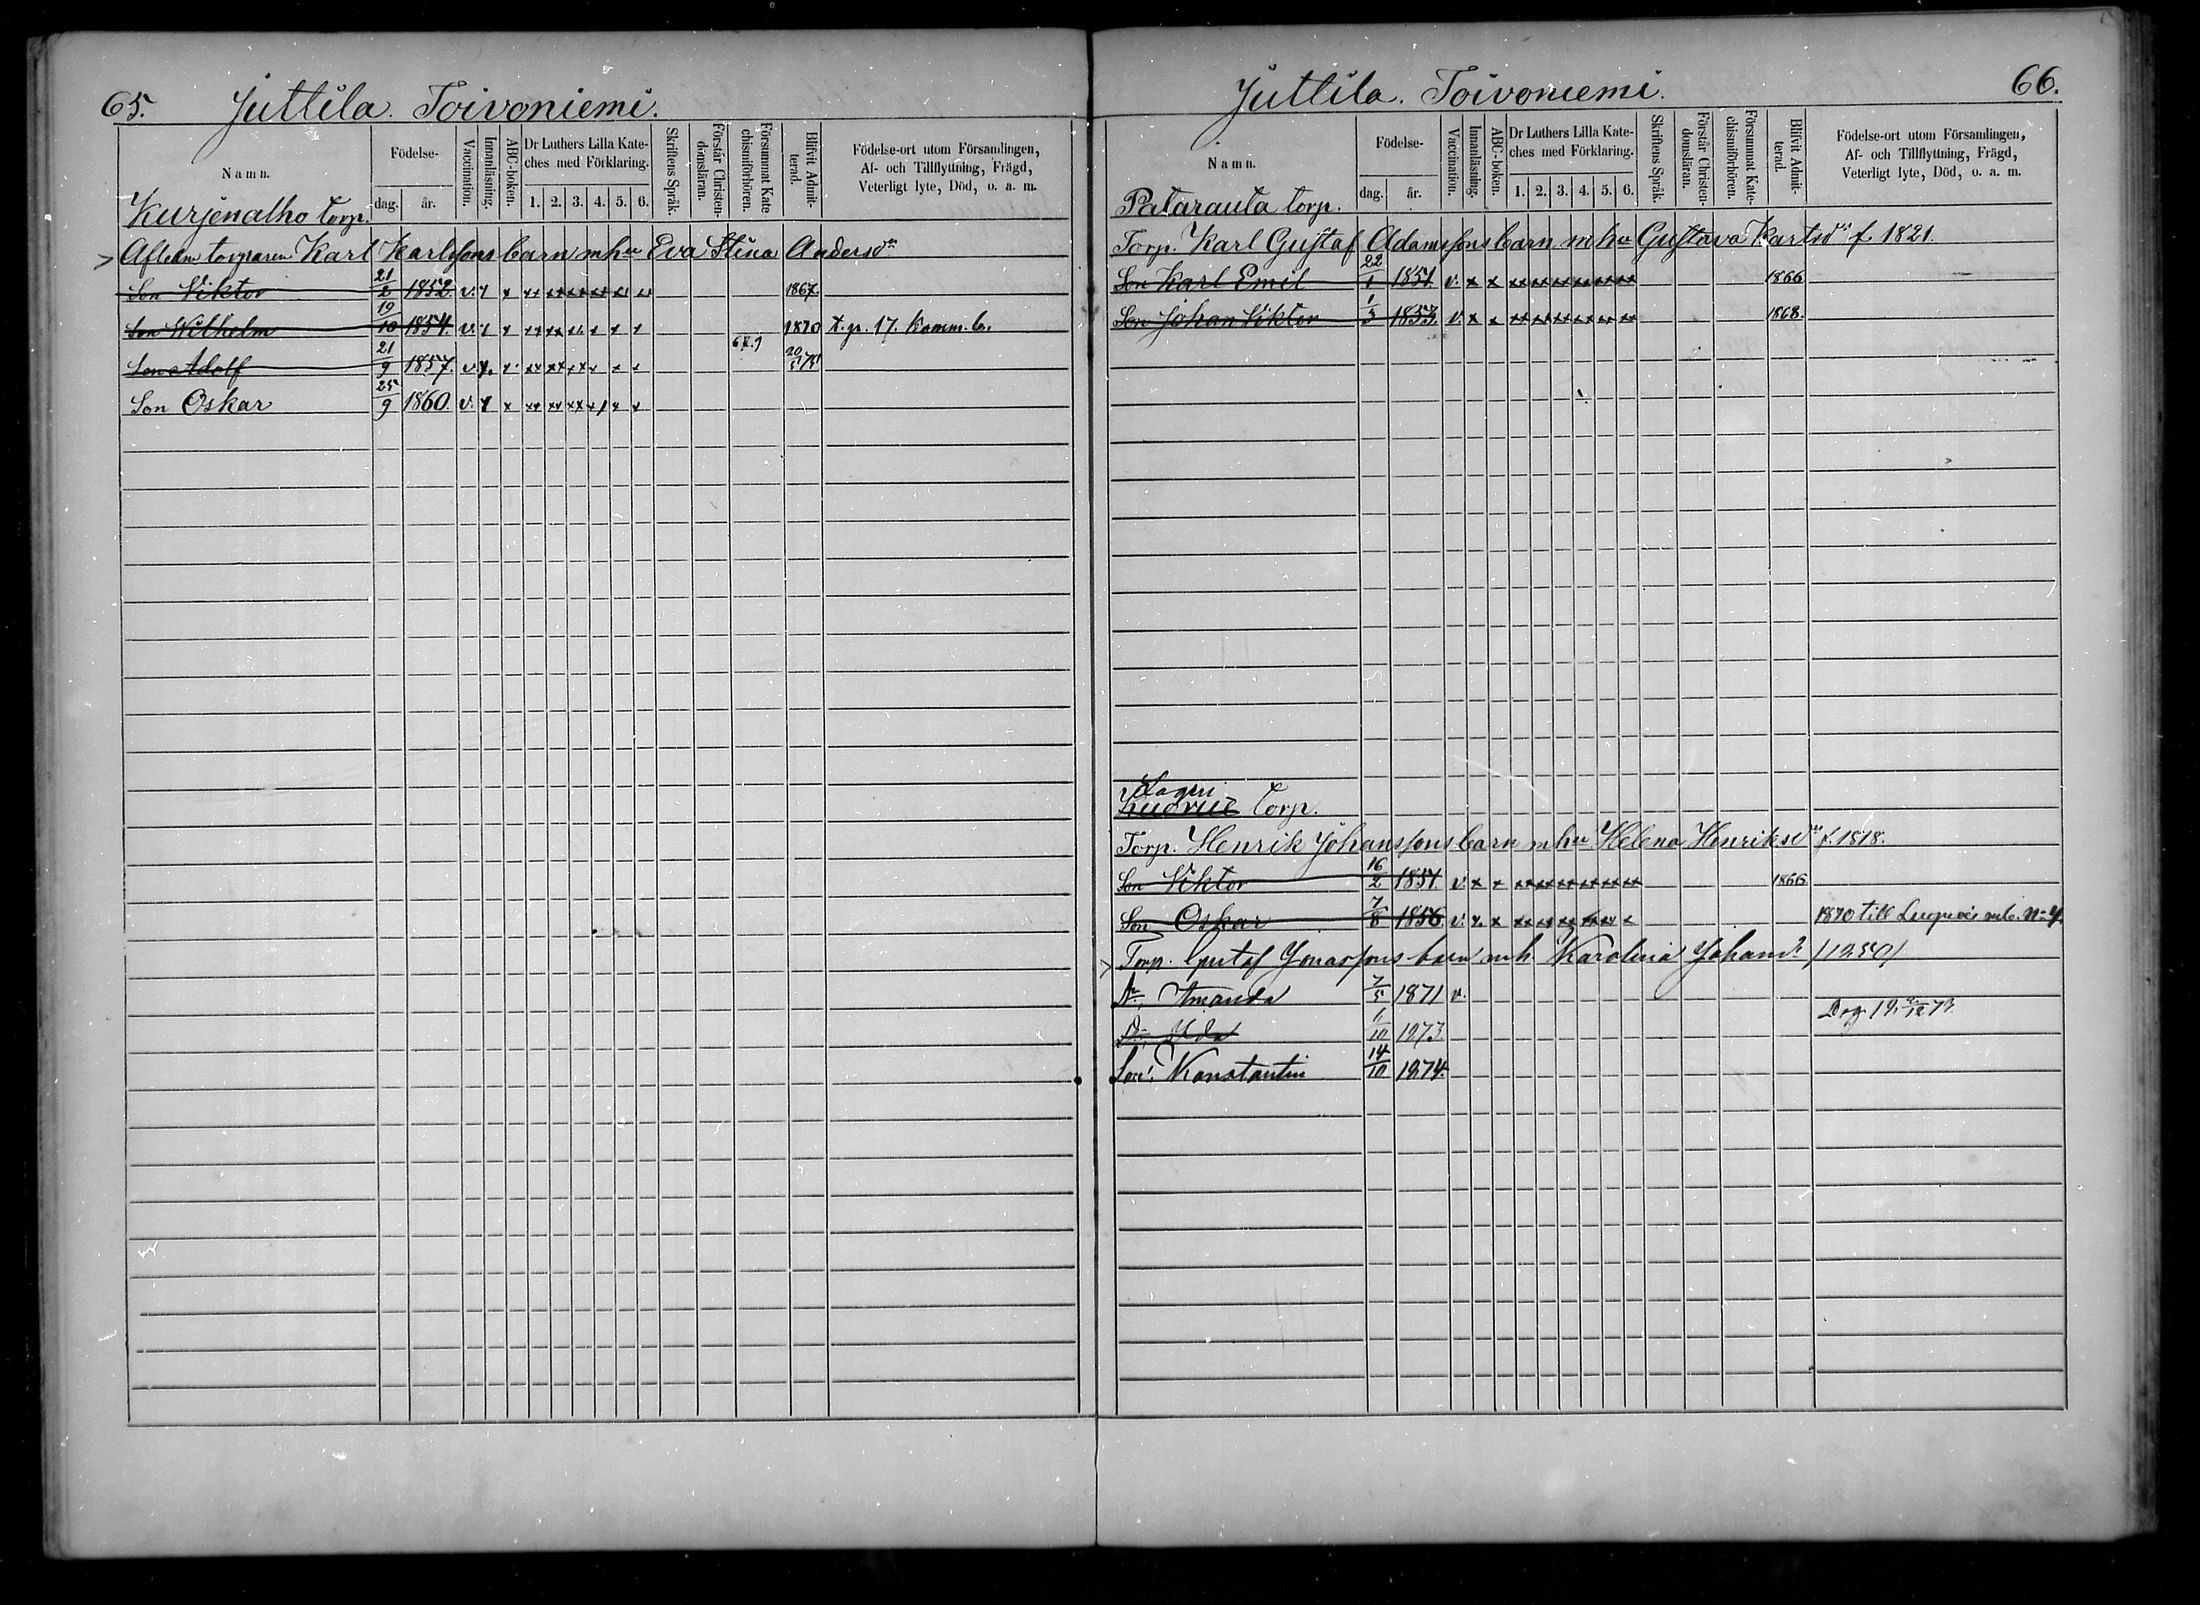 65. Juttila. Toivoniemi.
Namn.
Födelse-
dag. år.
Vaccination.
Innanläsning.
ABC-boken.
Dr Luthers Lilla Kate-
ches med Förklaring.
1. 2. 3. 4. 5. 6.
Skriftens Språk.
Förstår Christen-
domsläran.
Försummat Kate
chismiförhören.
Blifvit Admit-
terad.
Födelse-ort utom Församlingen,
Af- och Tillflyttning, Frägd,
Veterligt lyte, Död, o. a. m.
Kurjenalho torp.
Karl Karlssons barn m hu Eva Stina Andersdr
Son Viktor 21/2 1852. v. x x xx xx xx xx xx xx 1867.
Son Wilhelm 19/10 1854. v. x x xx xx xx x x x 1870 t. p. 17. Komm. b.
Son Adolf 21/9 1857. v. x. x xx xx xx x x x
Son Oskar 25/9 1860. v. x x xx xx xx x x x
Juttila. Toivoniemi. 66.
Namn.
Födelse-
dag. år.
Vaccination.
Innanläsning.
ABC-boken.
Dr Luthers Lilla Kate-
ches med Förklaring.
1. 2. 3. 4. 5. 6.
Skriftens Språk.
Förstår Christen-
domsläran.
Försummat Kate-
chismiförhören.
Blifvit Admit-
terad.
Födelse-ort utom Församlingen,
Af- och Tillflyttning, Frägd,
Veterligt lyte, Död, o. a. m.
Patarauta torp.
Torp. Karl Gustaf Adamssons barn m hu Gustava Karlsdr f 1821.
Son Karl Emil 22/1 1851. v. x x xx xx xx xx xx xx 1866
Son Johan Viktor 1/3 1853. v. x x xx xx xx xx xx xx 1868.
torp.
Torp. Henrik Johanssons barn m hu Helena Henriksdr f. 1818.
Son Viktor 16/2 1851. v. x x xx xx xx xx xx xx 1866
Son Oskar 7/8 1856. v. x. x xx xx xx xx xx x 1870 till
Torp. Gustaf Jonassons barn m h. Karolina Johansd. /1850/
Dr. Amanda 7/5 1871 v.
Dr. Ida 6/10 1873.
Son, Konstantin 14/10 1874.